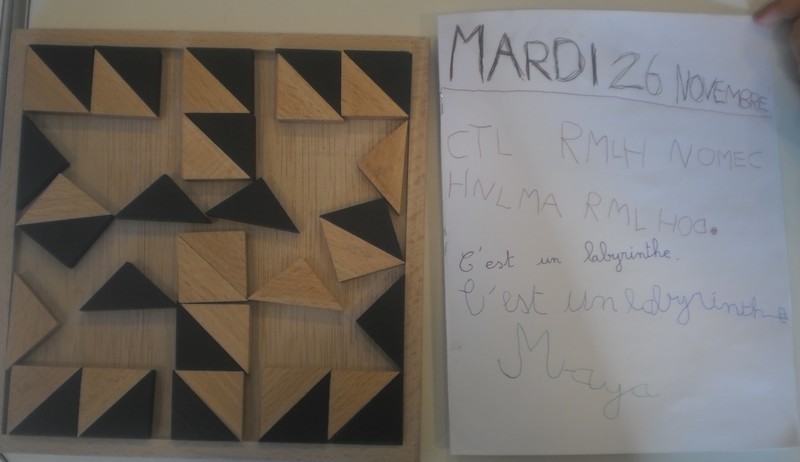 MARDI 26 NOVEMBRE
CTL RMLH NOMEC
HNLMA RML HOC.
C'est un labyrinthe.
C'est un labyrinthe
Maya